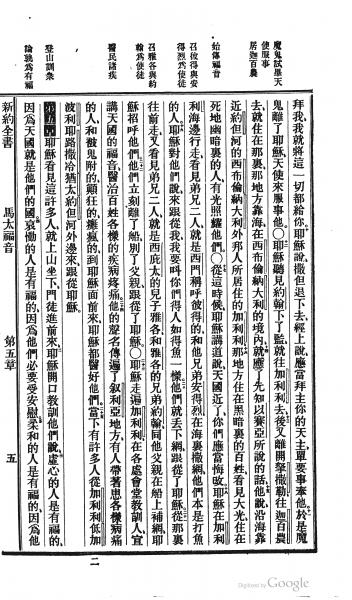 魔鬼試畢天
使服事
居迦百農
始傳福音
召彼得與安
得烈為使徒
召雅各與約
翰為使徒
醫民諸疾
登山訓衆
論孰為有福
拜我我就將這一切都給你耶穌說撒但退下去經上說應當拜主你的天主單要事奉他於是魔
鬼離了耶穌天使來服事他〇耶穌聽見約翰下了監就往加利利去後又離開拏撒勒往迦百農
去就住在那裏那地方靠海在西布倫納大利的境內就應了先知以賽亞所說的話他說沿海靠
近約但河的西布倫納大利外邦人所居住的加利利那地方住在黑暗裏的百姓看見大光住在
死地幽暗裏的人有光照耀他們〇從這時候耶穌講道說天國近了你們應當悔改耶穌在加利
利海邊行走看見弟兄二人就是西門稱呼彼得的和他兄弟安得烈在海裏撒網他們本是打魚
的人耶穌對他們說來跟從我我要叫你們得人如得魚一樣他們就丟下網跟從了耶穌從那裏
往前走又看見弟兄二人就是西庇太的兒子雅各和雅各的兄弟約翰同他父親在船上補網耶
穌招呼他們他們立刻離了船別了父親跟從了耶穌〇耶穌走遍加利利在各處會堂教訓人宣
講天國的福音醫治百姓各樣的疾病疼痛他的聲名傳遍了叙利亞地方有人帶著患各樣病痛
的人和被鬼附的癲狂的攤瘋的到耶穌面前來耶穌都醫好他們當下有許多人從加利利低加
波利耶路撒冷猶太約但河外邊來跟從耶穌
第五章耶穌看見這許多人就上山坐下門徒進前來耶穌開口教訓他們說虛心的人是有福的
因為天國就是他們的國哀慟的人是有福的因為他們必要受安慰柔和的人是有福的因為他
新約全書 馬太福音 第五章 五
二
Digitized by Google